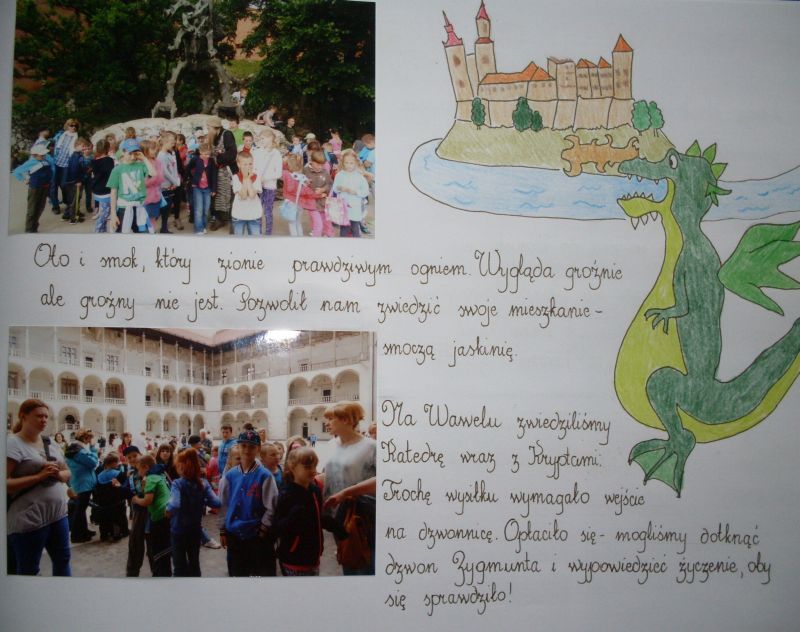 Oto i smok, który zionie prawdziwym ogniem. Wygląda groźnie
ale groźny nie jest. Pozwolił nam zwiedzić swoje mieszkanie -
smoczą jaskinię.
Na Wawelu zwiedziliśmy
Katedrę wraz z Kryptami.
Trochę wysiłku wymagało wejście
na dzwonnicę. Opłaciło się - mogliśmy dotknąć
dzwon Zygmunta i wypowiedzieć życzenie, oby
się sprawdziło!
N